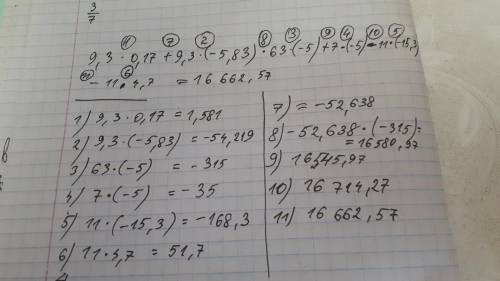 3
7
11 7 2 8 13 9 4 10 5
9,3 · 0,17 + 9,3 · (-5,83) · 63 · (-5) + 7 · (-5) - 11 · (-15,3)
6
- 11 · 4,7 = 16 662,57
1) 9,3 · 0,17 = 1,581
2) 9,3 · (-5,83) = -54,219
3) 63 · (-5) = - 315
4) 7 · (-5) = - 35
5) 11 · (-15,3) = -168,3
6) 11 · 4,7 = 51,7
7) = -52,638
8) -52,638 · (-315) =
= 16580,97
9) 16545,97
10) 16 714,27
11) 16 662,57